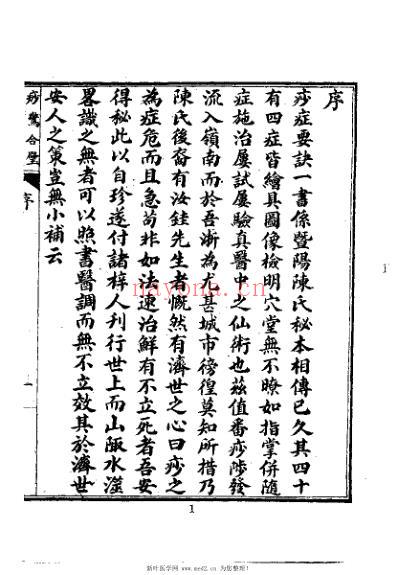 序
痧症要訣一書係暨陽陳氏秘本相傳已久其四十
有四症皆繪具圖像檢明穴堂無不瞭如指掌併隨
症施治屢試屢驗真醫中之仙術也茲值番痧陟發
流入嶺南而於吾浙為尤甚城市徬徨莫知所措乃
陳氏後裔有汝銈先生者慨然有濟世之心曰痧之
為症危而且急苟非如法速治鮮有不立死者吾安
得秘此以自珍遂付諸梓人刊行世上而山陬水澨
畧識之無者可以照書醫調而無不立效其於濟世
安人之策豈無小補云
痧驚合璧
序
一
1
1
nayona.cn
新叶医学网 www.med2.cn 为您整理!